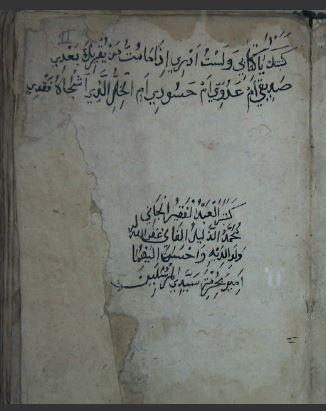 كتبتك ياكتابي ولست ادري اذا مامت من يقراك بعدي
صديقي ام عدوي ام حسودي ام الخل الذي اشجاه فقدي
كتبه العبد الفقير الجاني
محمد الذليل الفاني غفر الله له
ولوالديه واحسن اليهما
امين بحرمة سيد المرسلين